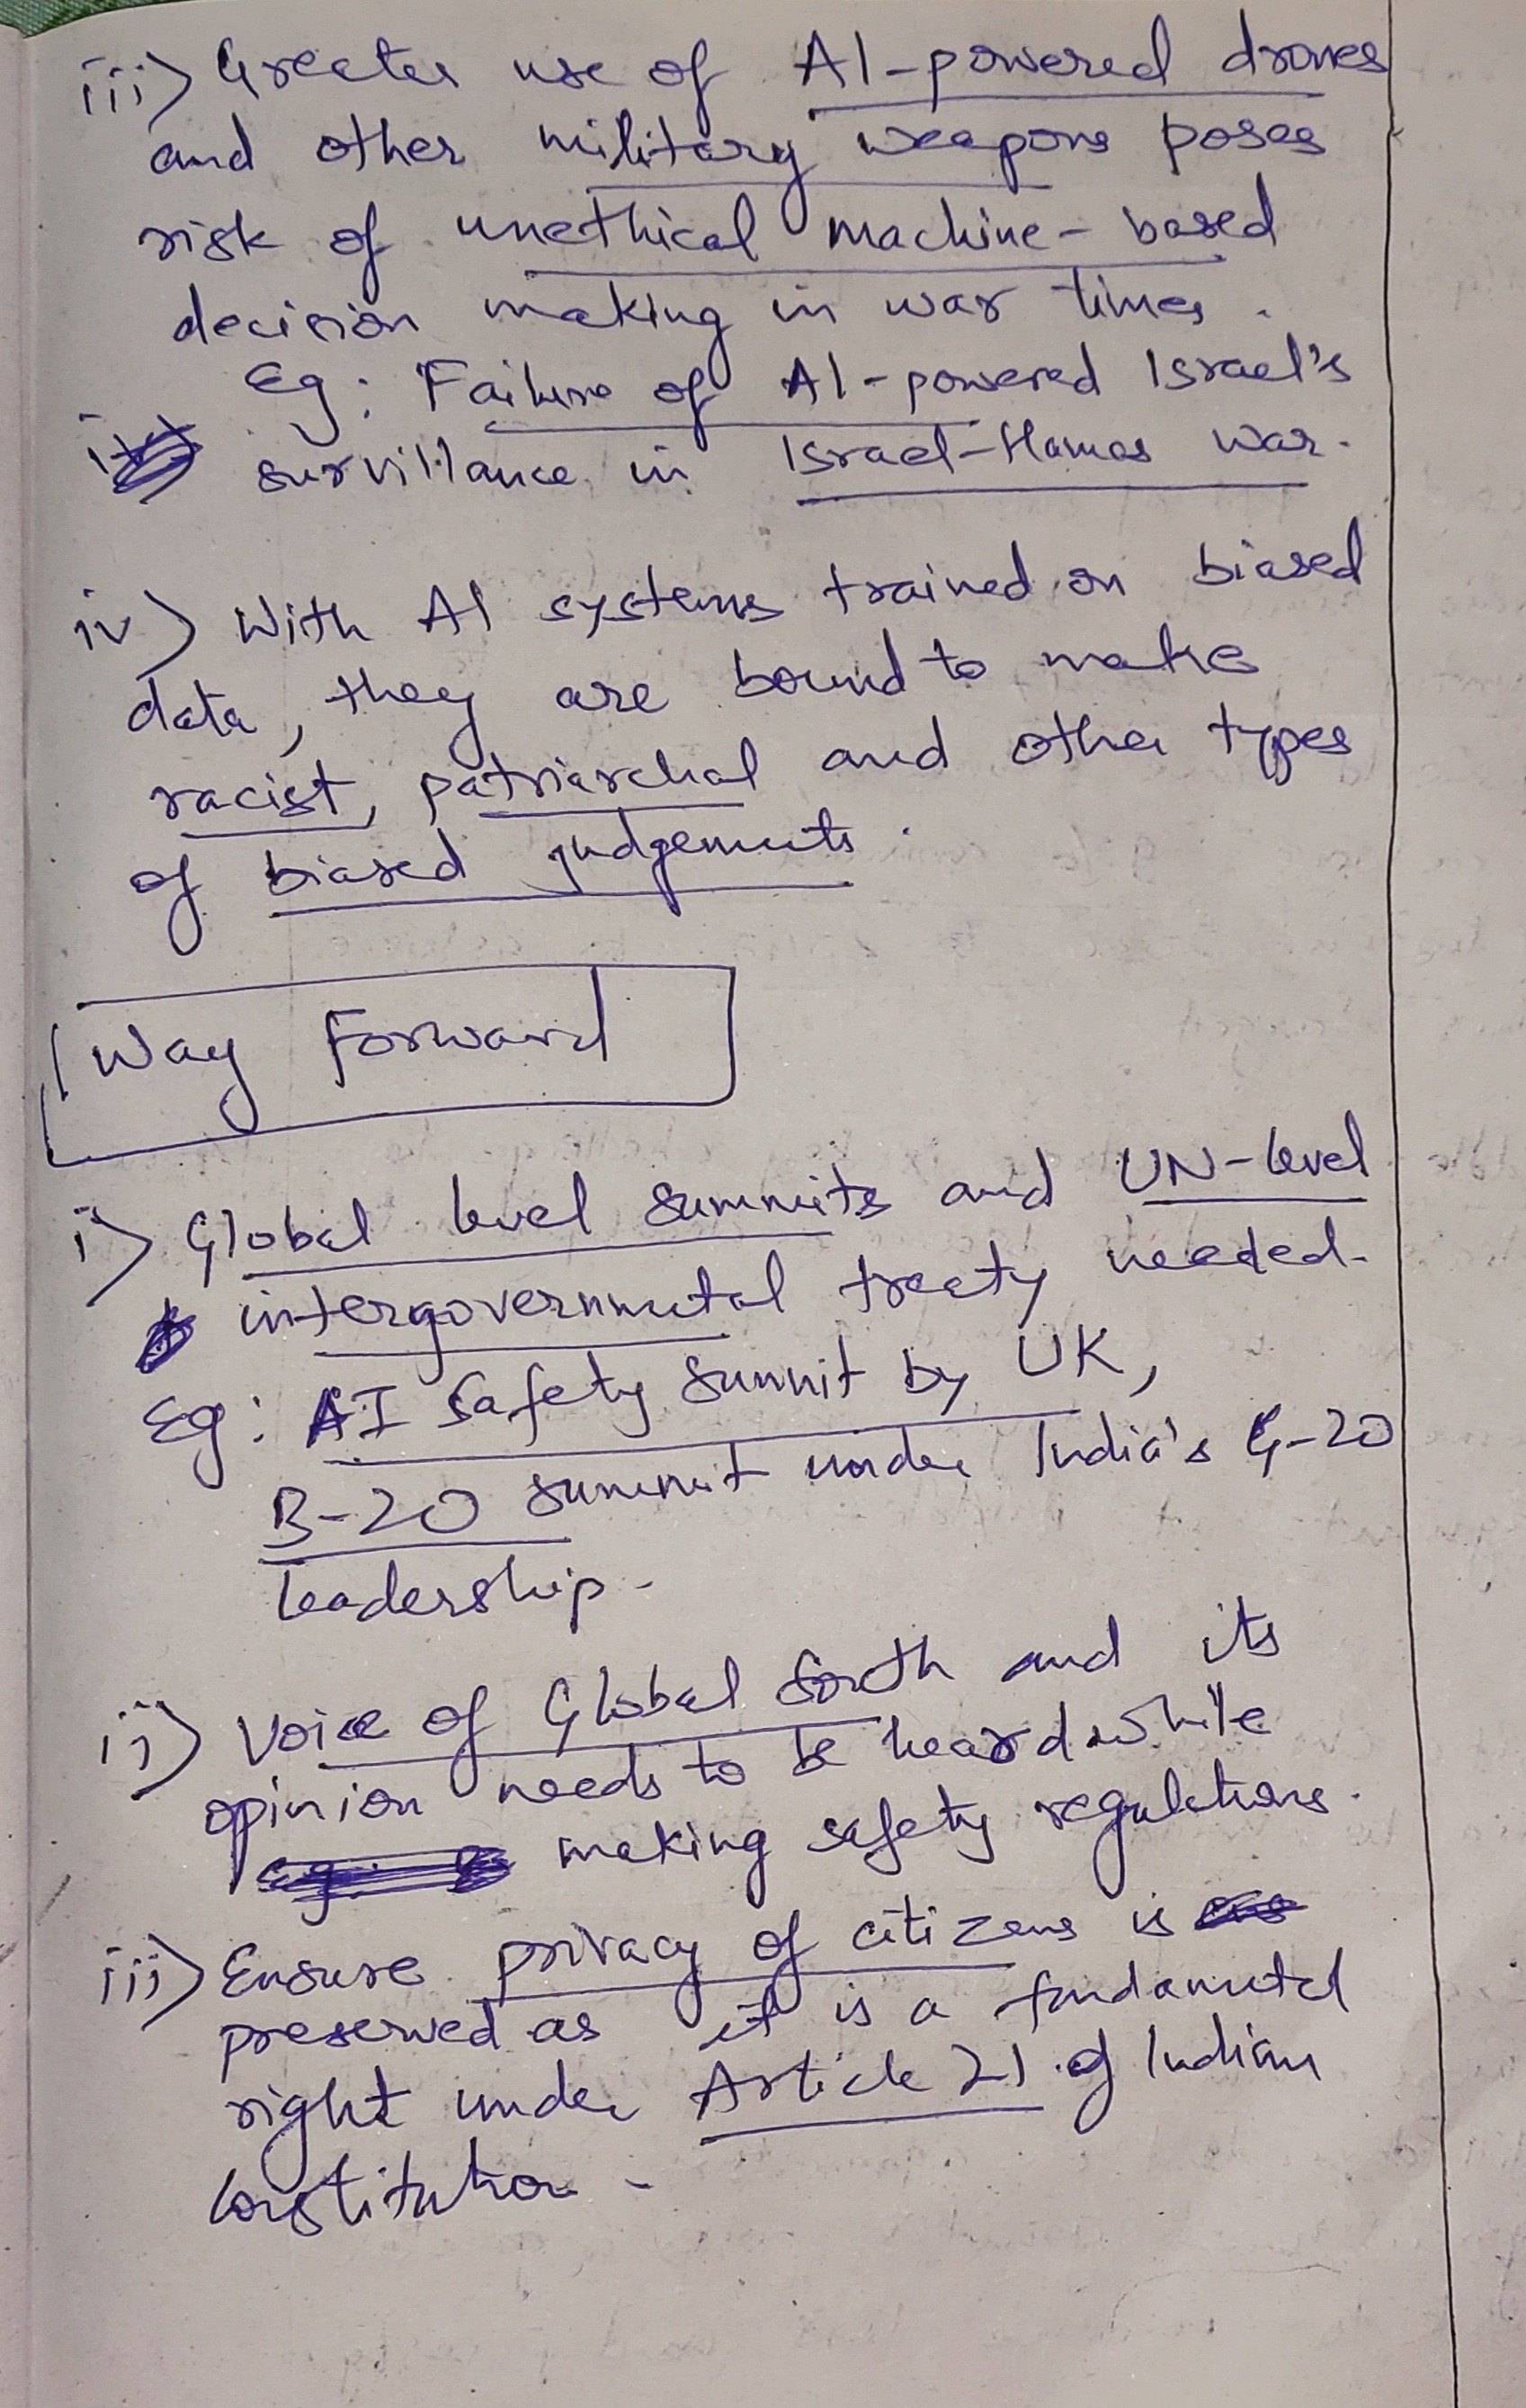 iii) Greater use of AI-powered drones
and other military weapons poses
risk of unethical machine-based
decision making in war times.
Eg: Failure of AI-powered Israel's
survillance in Israel-Hamas war.
iv) With AI systems trained on biased
data, they are bound to make
racist, patriarchal and other types
of biased judgements.
Way Forward
i) Global level summits and UN-level
intergovernmental treaty needed.
Eg: AI Safety Summit by UK,
B-20 summit under India's G-20
leadership.
ii) Voice of Global South and its
opinion needs to be heard while
making safety regulations.
iii) Ensure privacy of citizens is
preserved as it is a fundamental
right under Article 21 of Indian
Constitution.